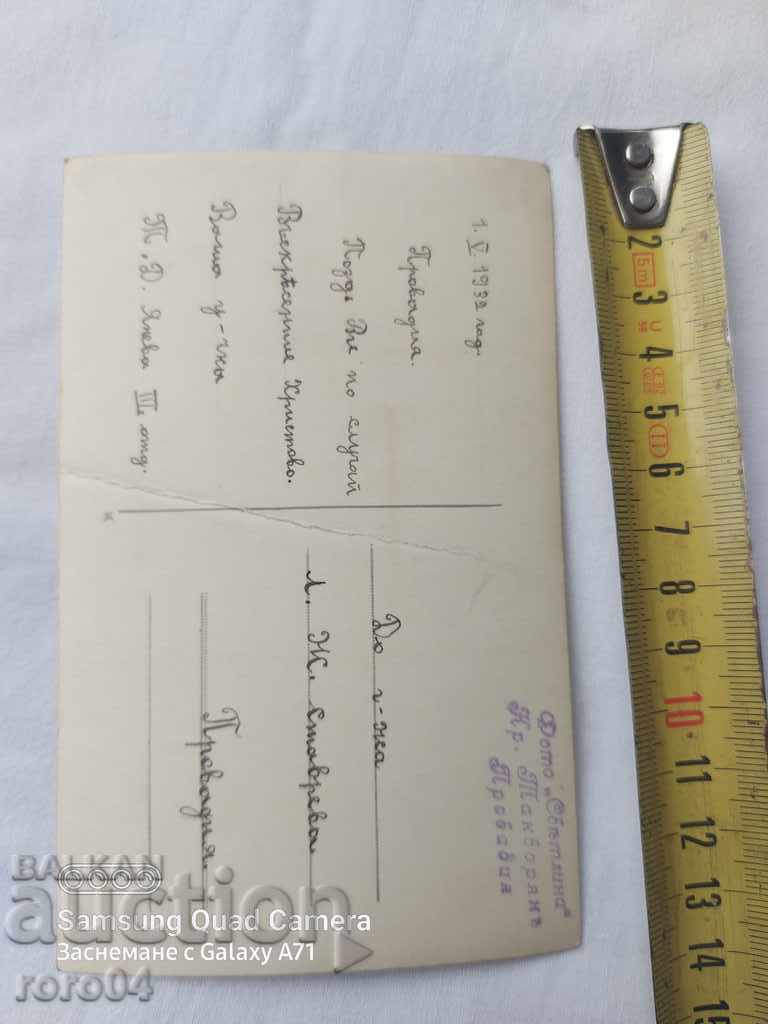 1. V 1932 год.
Провадия.
Поздр. Ве по случай
Възкресение Христово.
Ваша у-чка
Т. Д. Янева III отд.
До г-жа
Л. Ж. Ставрева
Провадия.
Фото „Светлина"
Кр. Такворянъ
Провадия
BALKAN
auction
Samsung Quad Camera
Заснемане с Galaxy A71
roro04
2
5m
3
4
5
II
6
7
8
9
10
11
12
13
14
15